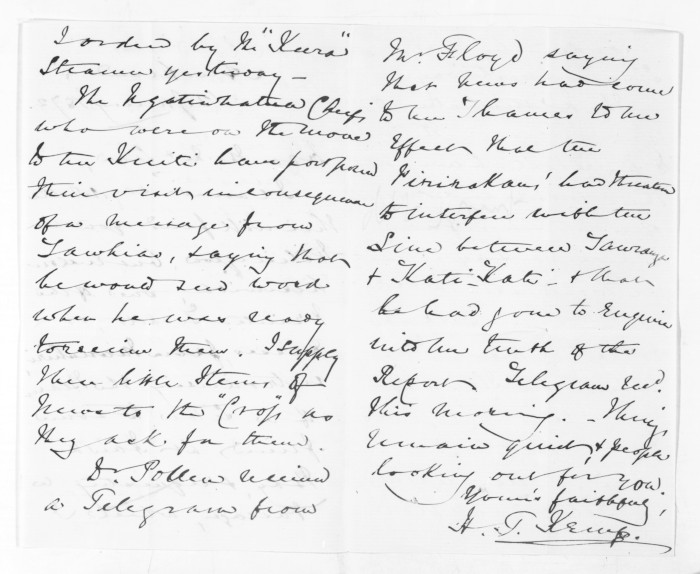 I orden by the "Keera"
Steamer yesterday –
The Ngatiwhatua Chiefs
who were on the move
to the Kuiti have postponed
their visit in consequence
of a message from
Tawhiao, saying that
he would send word
when he was ready
to receive them. I supply
these little Items of
News to the "Cross" as
they ask for them.
Dr. Pollen received
a Telegram from
Mr. Floyd saying
that news had come
to the Thames to the
effect that the
Pirirakau' had threatened
to interfere with the
Line between Tauranga
& Kati-Kati - & that
he had gone to enquire
into the truth of the
Report Telegram recd.
this morning. – Things
remain quiet, & people
looking out for you.
Yours faithfully,
H. T. Kemp.